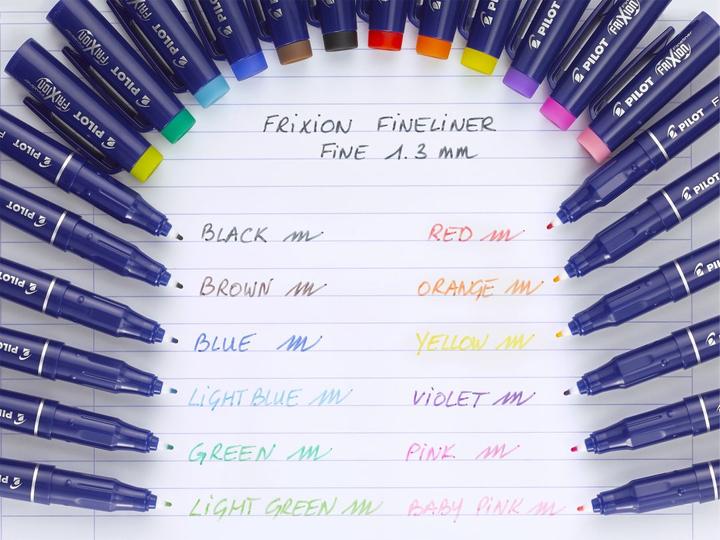 FRiXiON FiNELiNER
FiNE 1.3 mm
BLACK
BROWN
BLUE
LiGHT BLUE
GREEN
LiGHT GREEN
RED
ORANGE
YELLOW
ViOLET
PiNK
BABY PiNK
PILOT
FRIXION
PILOT
FRIXION
PILOT
PILOT
PILOT
PILOT
PILOT
FRIXION
PILOT
FRIXION
PILOT
PILOT
PILOT
PILOT
PILOT
PILOT
PILOT
PILOT
PILOT
PILOT
PILOT